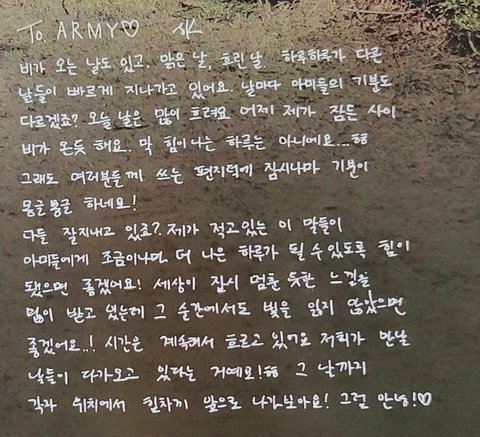 To. ARMY♡ JK
비가 오는 날도 있고. 맑은 날, 흐린 날 하루하루가 다른
날들이 빠르게 지나가고 있어요. 날마다 아미들의 기분도
다르겠죠? 오늘 날은 많이 흐려요 어제 제가 잠든 사이
비가 온듯 해요.. 막 힘이 나는 하루는 아니에요...ㅎㅎ
그래도 여러분들께 쓰는 편지덕에 잠시나마 기분이
몽글몽글 하네요!
다들 잘지내고 있죠? 제가 적고있는 이 말들이
아미들에게 조금이나마 더 나은 하루가 될 수 있도록 힘이
됐으면 좋겠어요! 세상이 잠시 멈춘 듯한 느낌을
많이 받고 있는데 그 순간에서도 빛을 잃지 않았으면
좋겠어요..! 시간은 계속해서 흐르고 있어요 저희가 만날
날들이 다가오고 있다는 거예요!ㅎㅎ 그 날까지
각자 위치에서 힘차게 앞으로 나가보아요! 그럼 안녕!♡